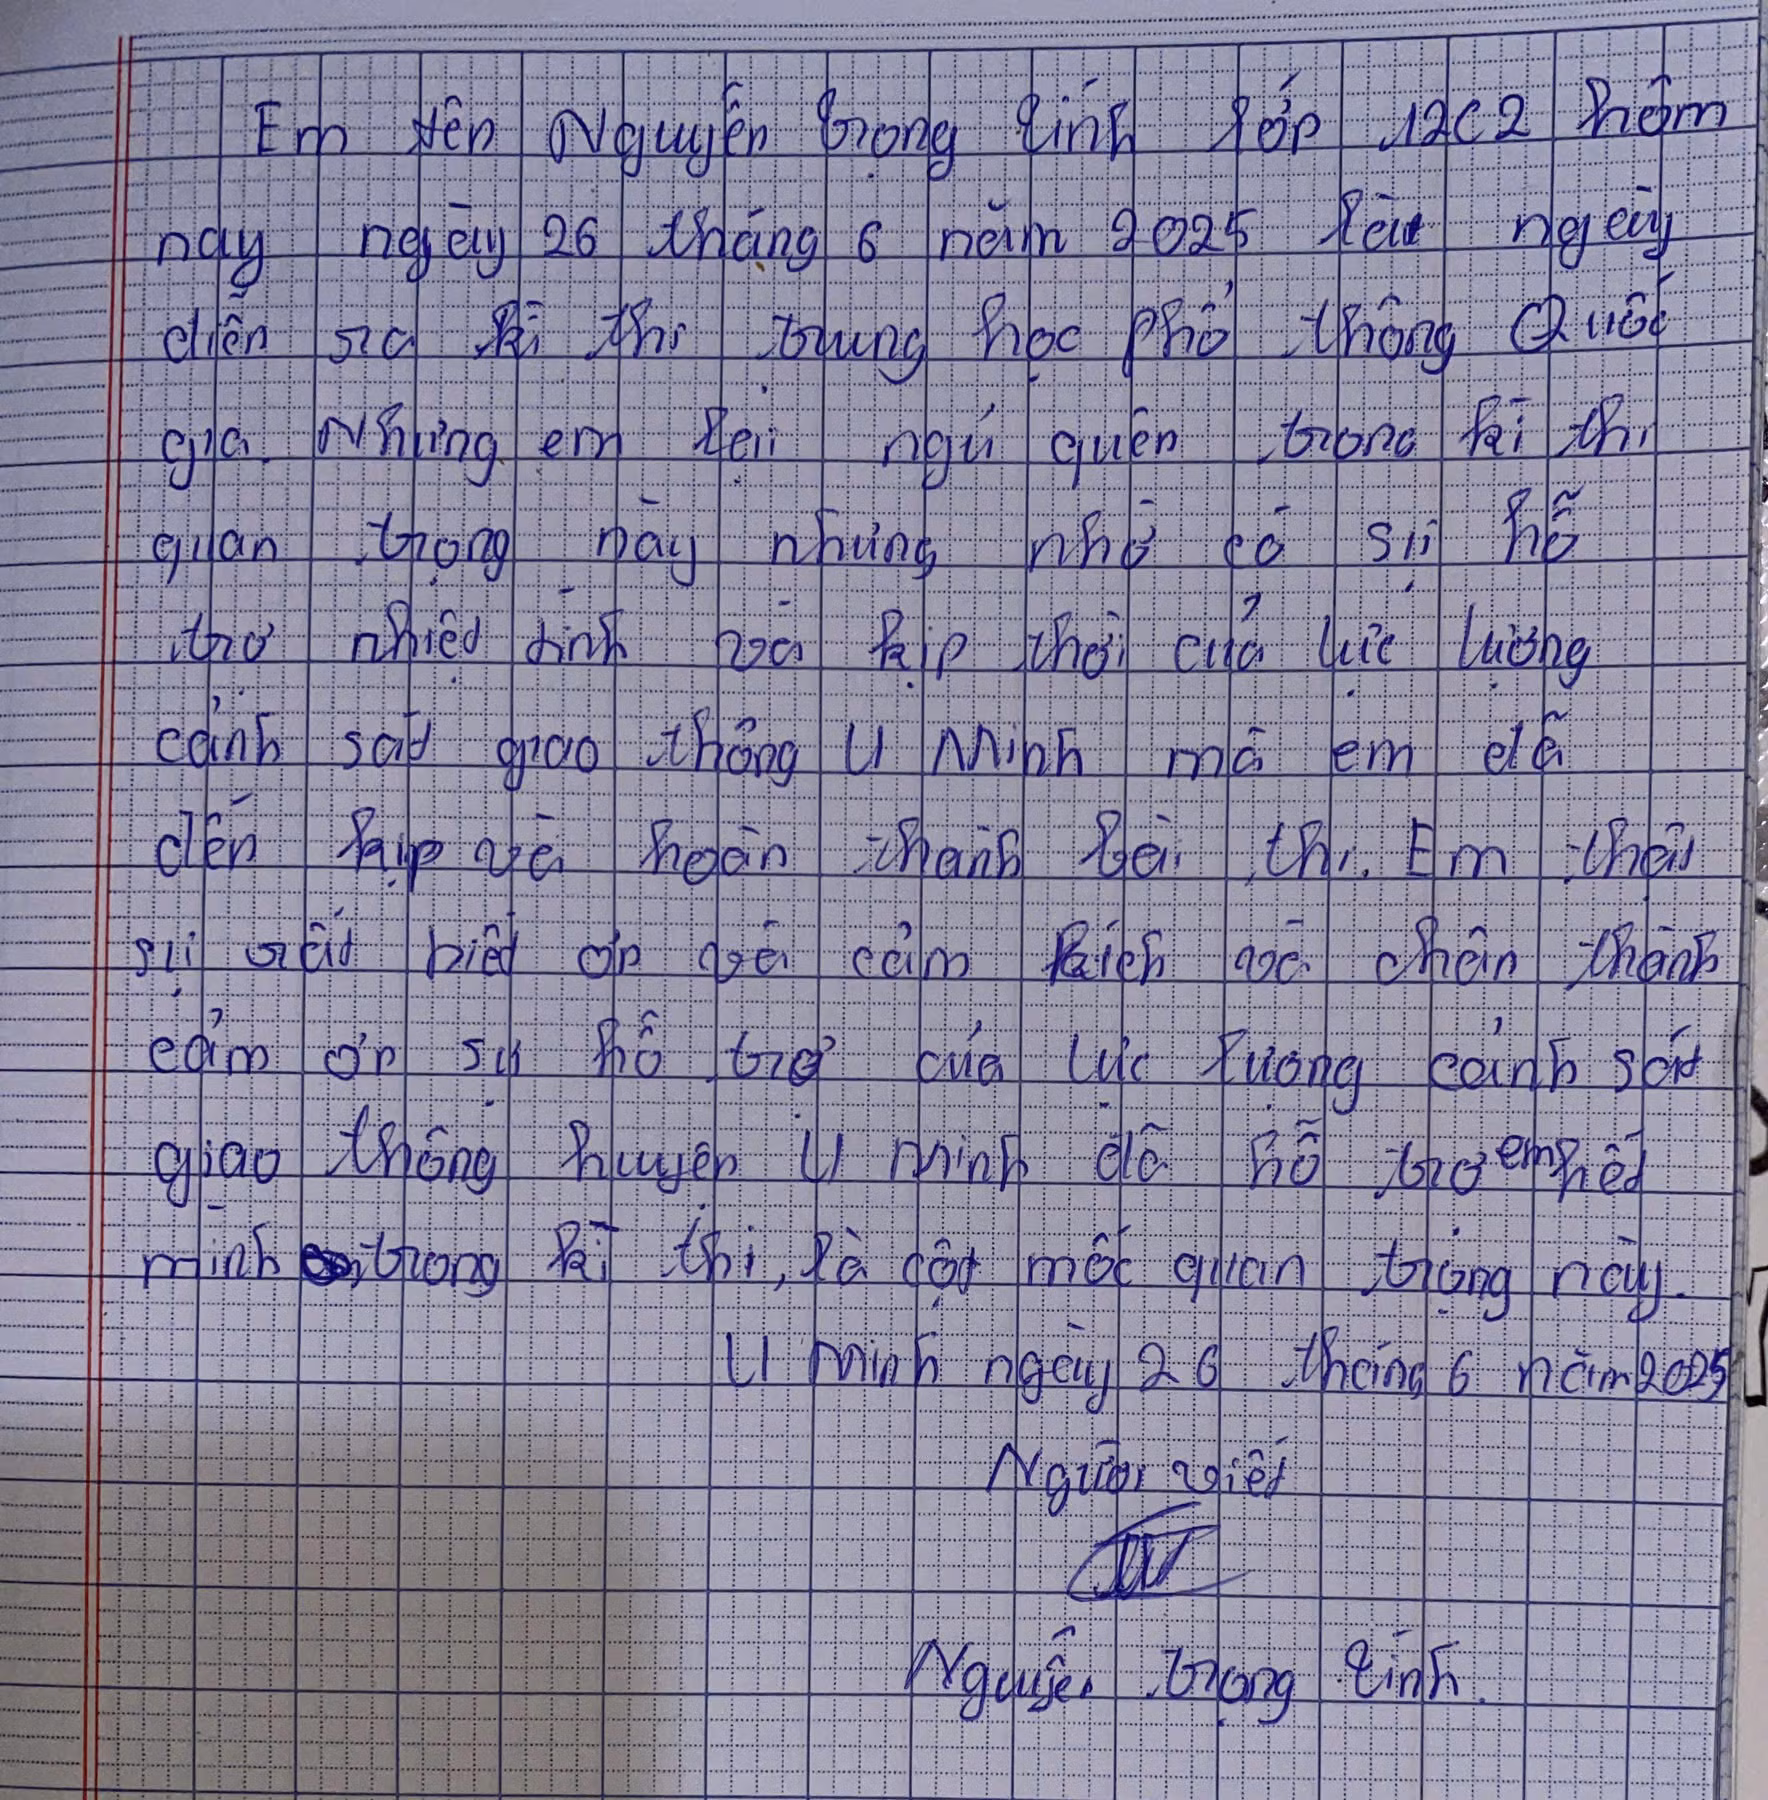 Em tên Nguyễn Trọng Tính lớp 12C2 hôm
nay ngày 26 tháng 6 năm 2025 là ngày
diễn ra kì thi trung học phổ thông Quốc
gia. Nhưng em lại ngủ quên trong kì thi
quan trọng này nhưng nhờ có sự hỗ
trợ nhiệt tình và kịp thời của lực lượng
cảnh sát giao thông U Minh mà em đã
đến kịp và hoàn thành bài thi. Em thật
sự rất biết ơn và cảm kích và chân thành
cảm ơn sự hỗ trợ của lực lượng cảnh sát
giao thông huyện U minh đã hỗ trợ em hết
mình trong kì thi, là cột mốc quan trọng này.
U minh ngày 26 tháng 6 năm 2025
Người viết
Nguyễn trọng tính